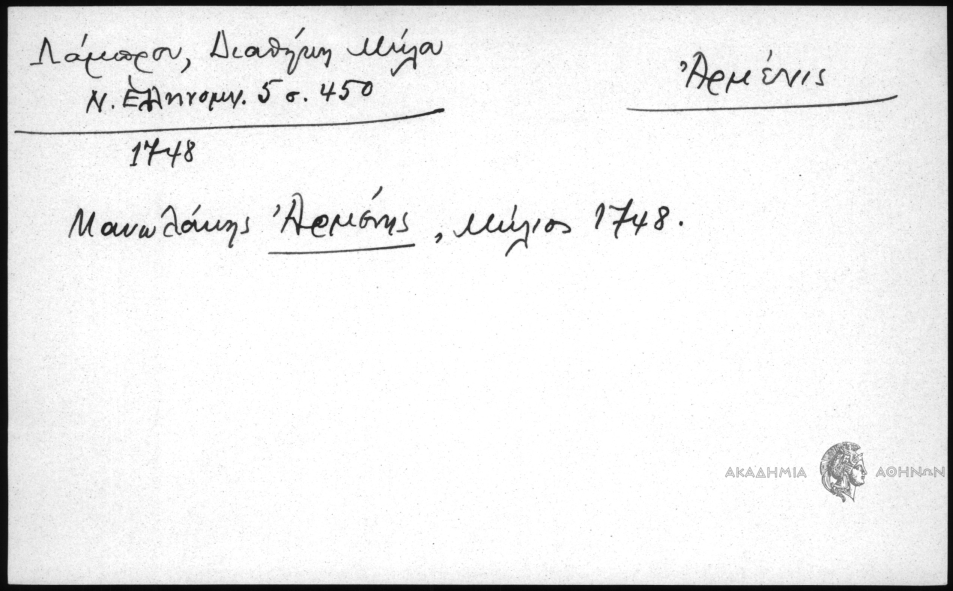 Λάμπρου, Διαθήκη Μήλα
Ν. Ἑλληνομν. 5 σ. 450
Ἀρμένις
1748
Μανωλάκης Ἀρμένης, Μήλιος 1748.
ΑΚΑΔΗΜΙΑ ΑΘΗΝΩΝ